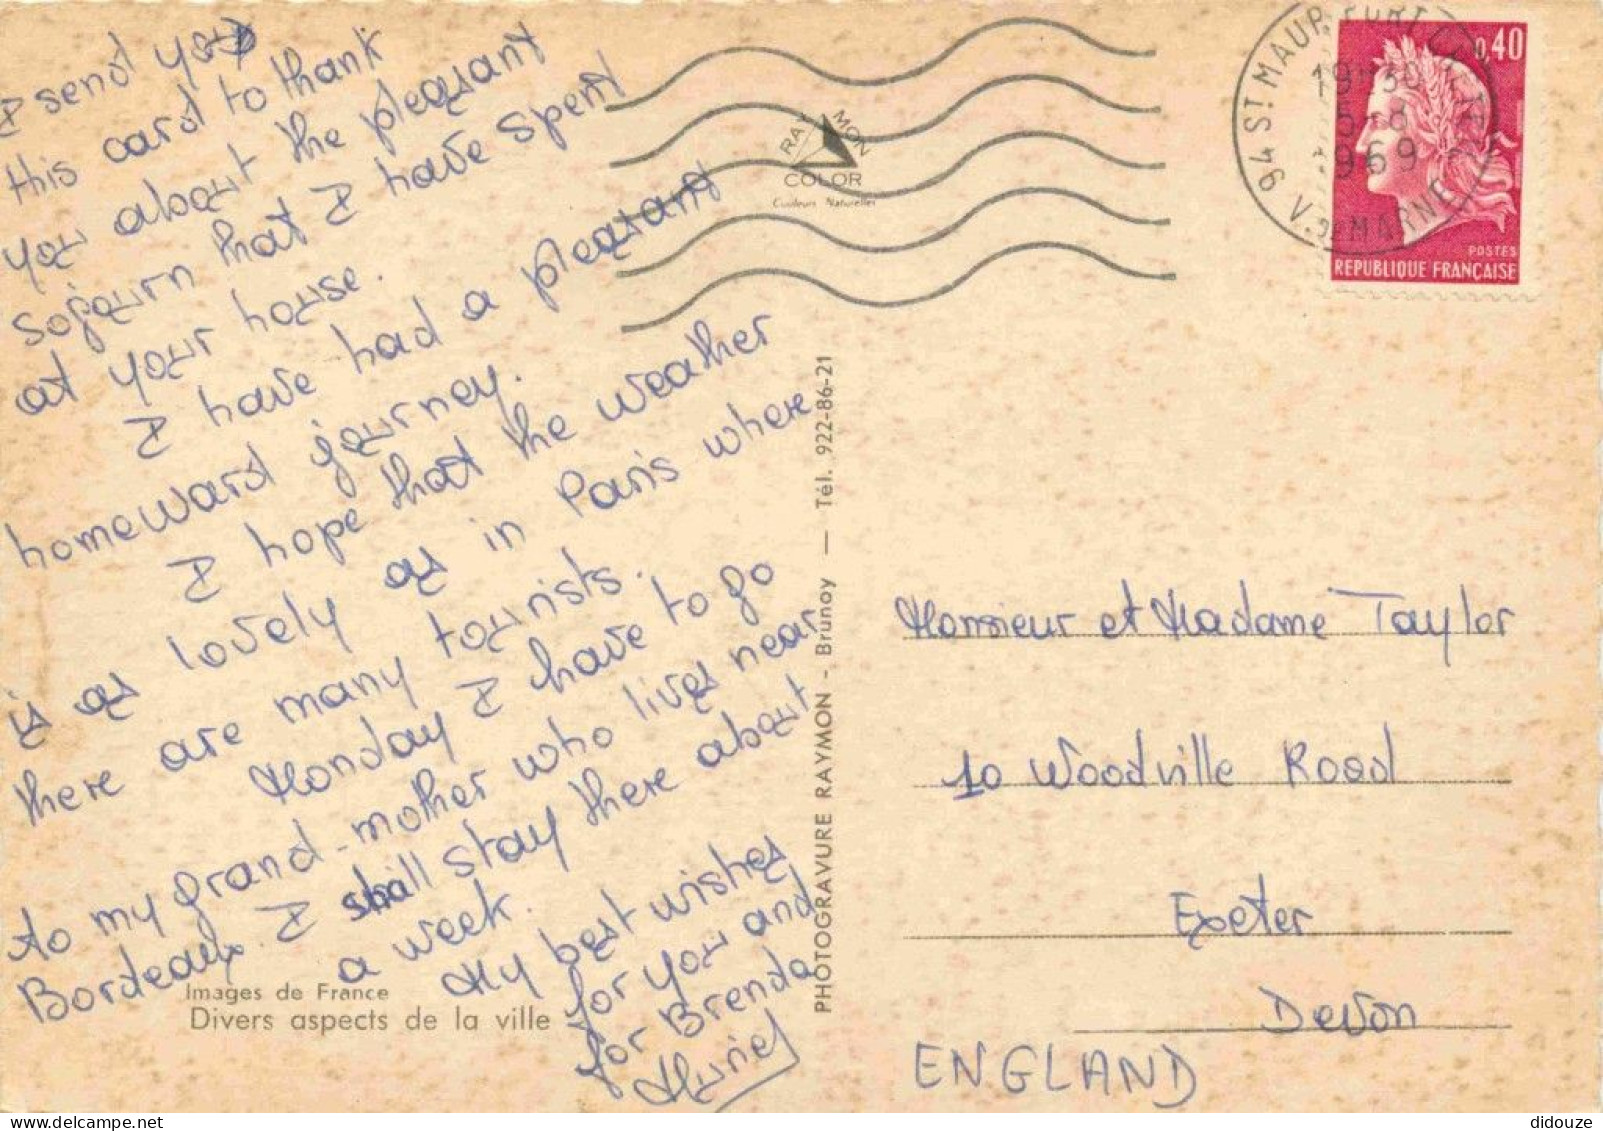 I send you
this card to thank
you about the pleasant
sojourn that I have spent
at your house.
I have had a pleasant
homeward journey.
I hope that the weather
is as lovely as in Paris where
there are many tourists.
Monday I have to go
to my grand-mother who lives near
Bordeaux. I shall stay there about
a week.
My best wishes
for you and
for Brenda
Muriel
Images de France
Divers aspects de la ville
RAYMON
COLOR
Couleurs Naturelles
PHOTOGRAVURE RAYMON - Brunoy — Tél. 922-86-21
94 ST MAUR
19H30
5-8
1969
V. DE MARNE
0,40
POSTES
REPUBLIQUE FRANÇAISE
Monsieur et Madame Taylor
10 Woodville Road
Exeter
Devon
ENGLAND
didouze